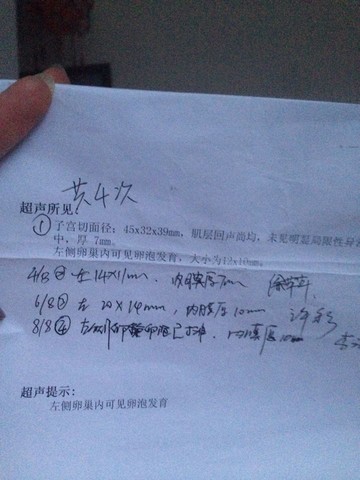 共4次
超声所见:
①子宫切面径: 45x32x39mm, 肌层回声尚均, 未见明显局限性异
中, 厚 7mm.
左侧卵巢内可见卵泡发育, 大小为12x10mm.
4/8 ② 左 14×11mm. 内膜厚7mm
6/8 ③ 左 20×14mm, 内膜厚10mm 许
8/8 ④ 左侧卵 卵泡已排. 内膜厚10mm 李
超声提示:
左侧卵巢内可见卵泡发育